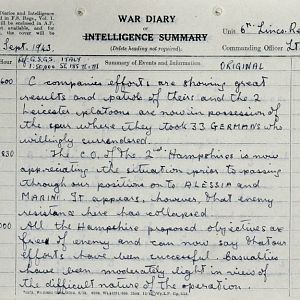 Diaries and Intelligence
in F.S. Regs., Vol. I.
WAR DIARY
OR
INTELLIGENCE SUMMARY
(Delete heading not required).
Unit 6th Lincs Re
Commanding Officer Lt
Sept. 1943.
G.S.G.S. ITALY
1:50,000
Summary of Events and Information
ORIGINAL
600 C companies efforts are showing great
results and patrols of theirs and the 2
Leicester platoons are now in possession
of the spur where they took 33 GERMANS who
willingly surrendered.
830 The C.O. of the 2nd Hampshires is now
appreciating the situation prior to passing
through our position on to ALESSIA and
MARINI. It appears, however, that enemy
resistance here has collapsed
000 All the Hampshire proposed objectives are
free of enemy and can now say that our
efforts have been successful. Casualties
have been moderately light in view of
the difficult nature of the operation.